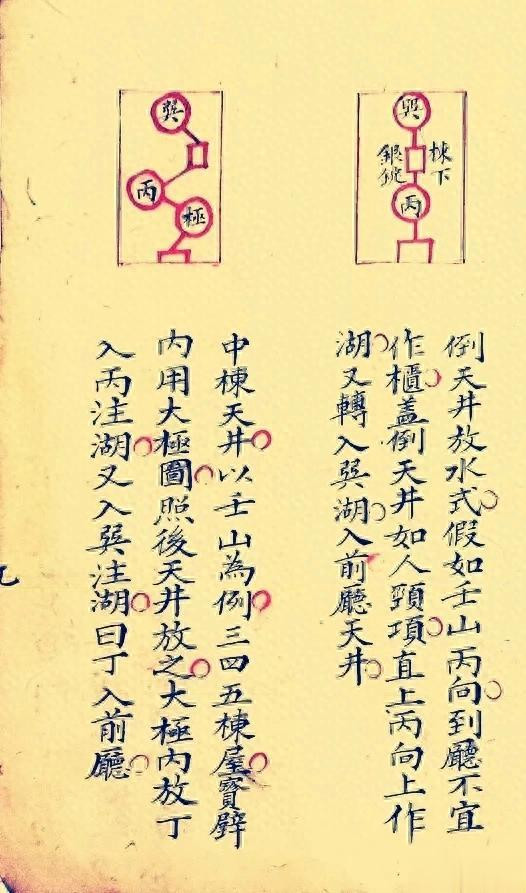 巽
棟下
銀錠
丙
倒天井放水式假如壬山丙向到廳不宜
作櫃蓋倒天井如人頸項直上丙向上作
湖又轉入巽湖入前廳天井
巽
丙
極
中棟天井以壬山為例三四五棟屋寳壁
內用大極圖照後天井放之大極內放丁
入丙注湖又入巽注湖曰丁入前廳